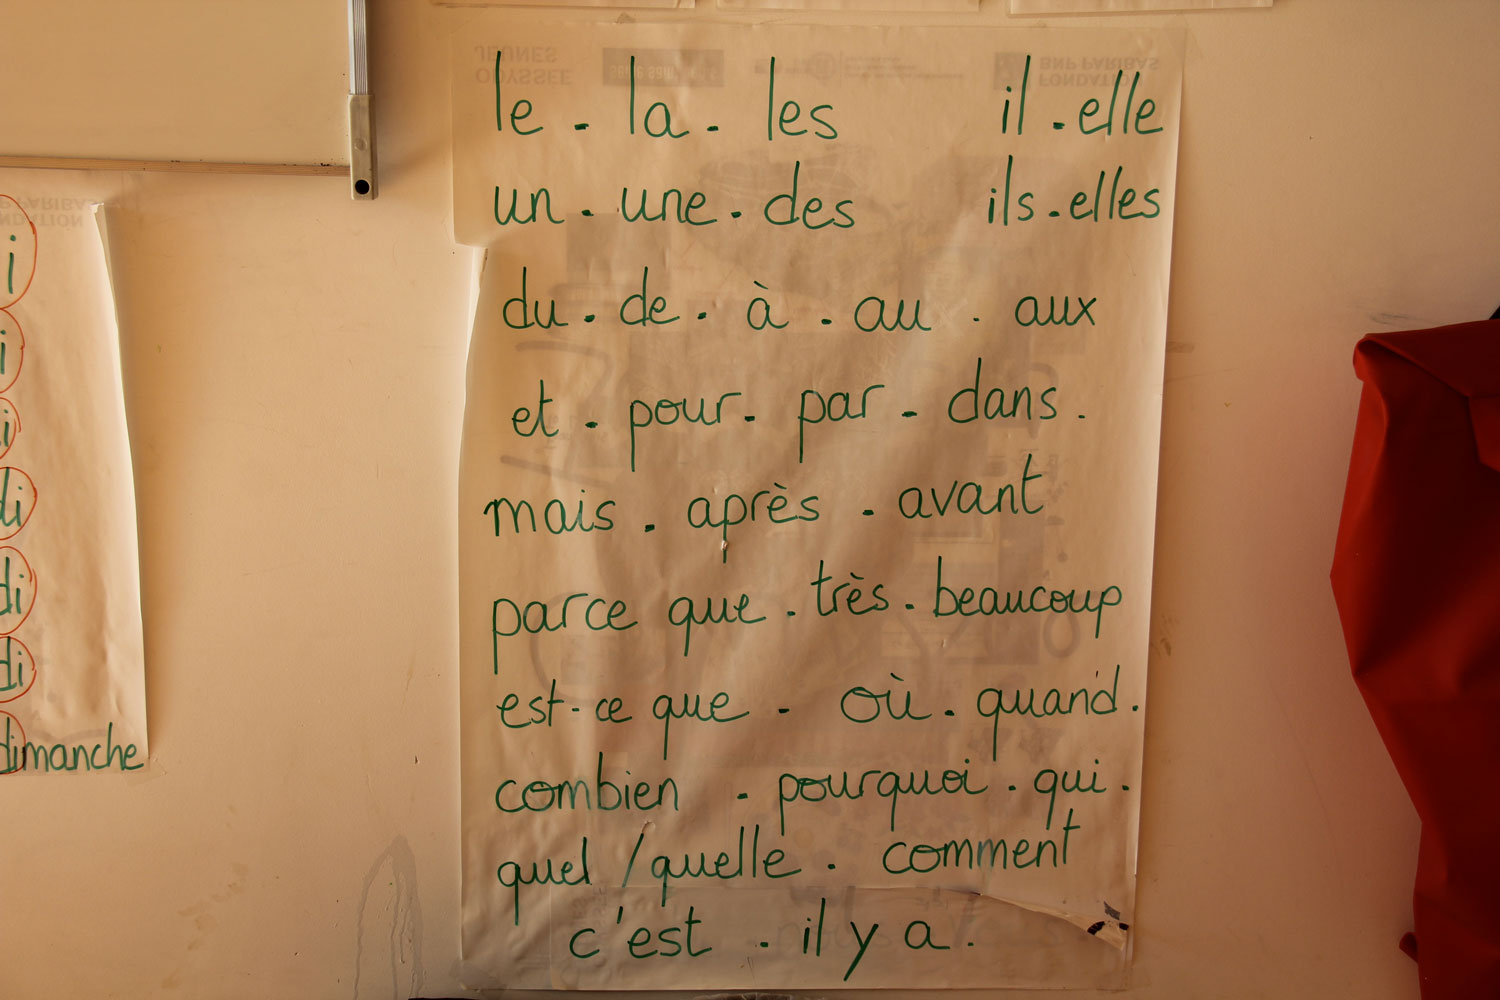 le . la . les il . elle
un . une . des ils . elles
du . de . à . au . aux
et . pour . par . dans .
mais . après . avant
parce que . très . beaucoup
est-ce que . où . quand .
combien . pourquoi . qui .
quel / quelle . comment
c'est . il y a .
i
i
i
di
di
di
dimanche
JEUNES
ODYSSEE
BNP PARIBAS
FONDATION